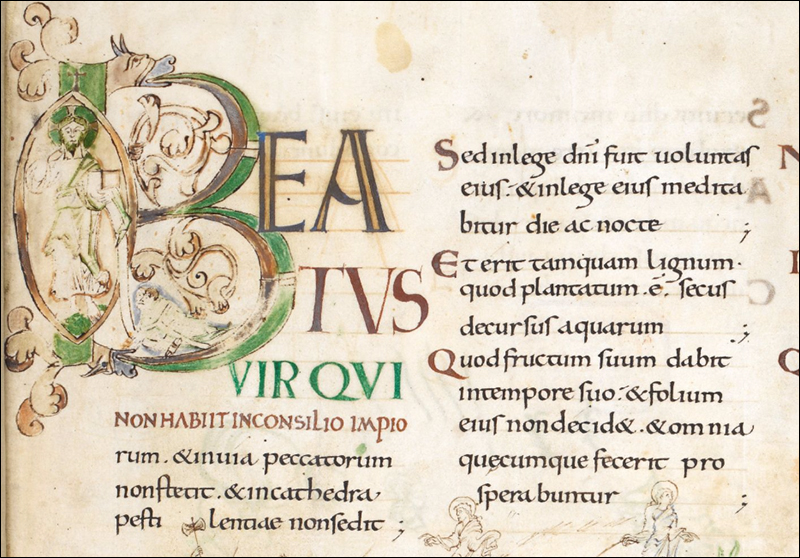 BEA
TVS
VIR QVI
NON HABIIT IN CONSILIO IMPIO
rum . & inuia peccatorum
non stetit . & incathedra
pesti lentiae non sedit ;
Sed inlege dñi fuit uoluntas
eius . & inlege eius medita
bitur die ac nocte ;
Et erit tamquam lignum .
quod plantatum . ē . secus
decursus aquarum . ;
Quod fructum suum dabit
intempore suo . & folium
eius non decid& . & omnia
quęcumque fecerit pro
sperabuntur ;